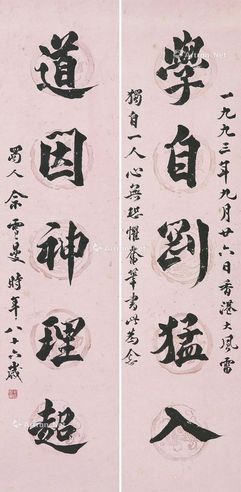 一九九三年九月廿六日香港大風雷
學自剛猛入
獨自一人心無恐懼奮筆書此為念
道因神理超
蜀人余雪曼時年八十六歲